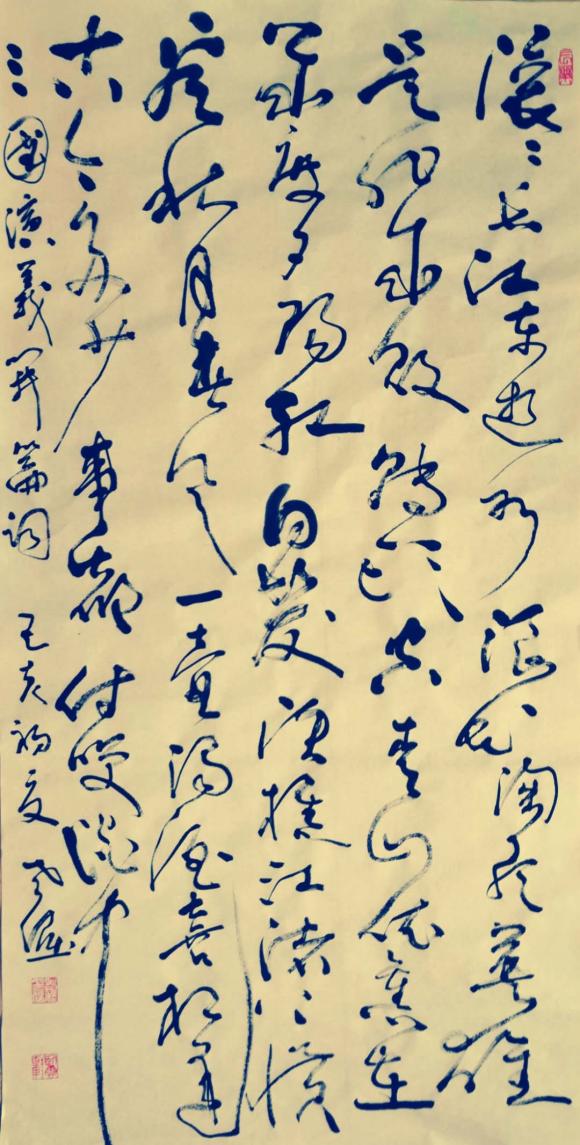 滚滚长江东逝水浪花淘尽英雄
是非成败转头空青山依舊在
幾度夕阳红白髮渔樵江渚上惯
看秋月春风一壶浊酒喜相逢
古今多少事都付笑谈中
三國演義开篇词己亥初夏